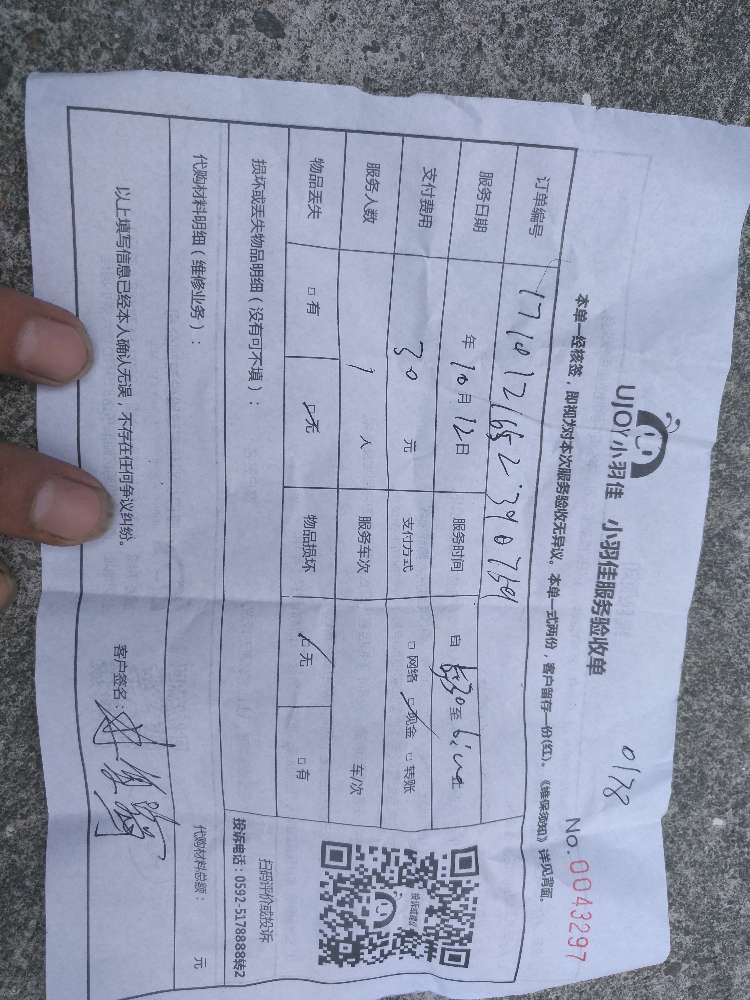 UJOY小羽佳 小羽佳服务验收单
0178
No.0043297
本单一经核签，即视为对本次服务验收无异议。本单一式两份，客户留存一份(红)。《维保须知》详见背面。
订单编号
服务日期 年 10 月 12 日 服务时间 自 至 止
支付费用 30 元 支付方式 □ 网络 ☑ 现金 □ 转账
服务人数 1 人 服务车次 车/次
物品丢失 □ 有 ☑ 无 物品损坏 ☑ 无 □ 有
损坏或丢失物品明细（没有可不填）：
扫码评价或投诉
投诉电话：0592-5178888转2
代购材料明细（维修业务）： 代购材料总额： 元
以上填写信息已经本人确认无误，不存在任何争议纠纷。 客户签名：
投诉或建议